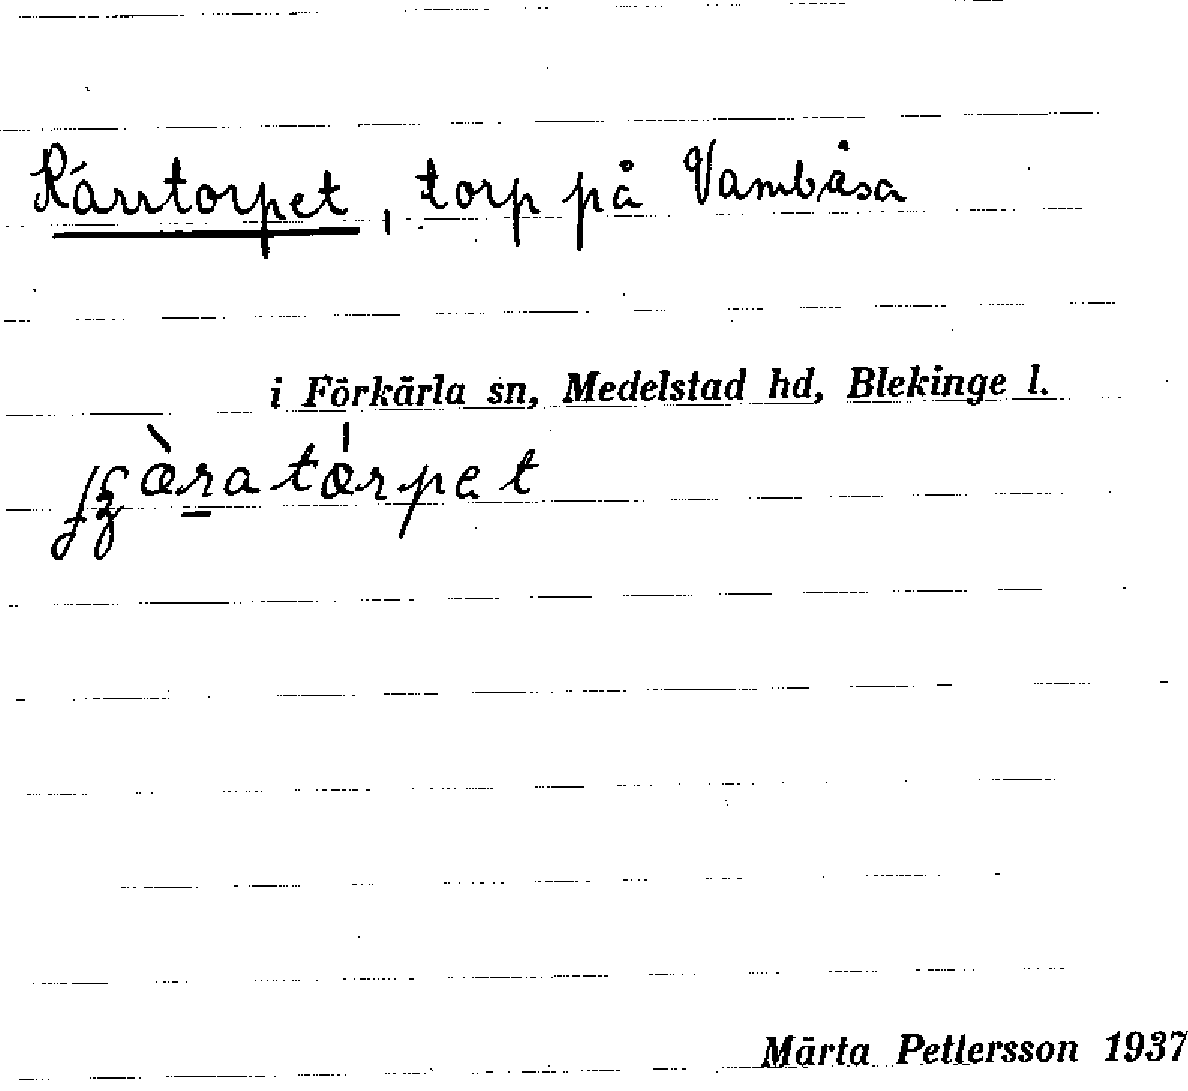 Kärrtorpet, torp på Vambåsa
i Förkärla sn, Medelstad hd, Blekinge l.
Märta Pettersson 1937